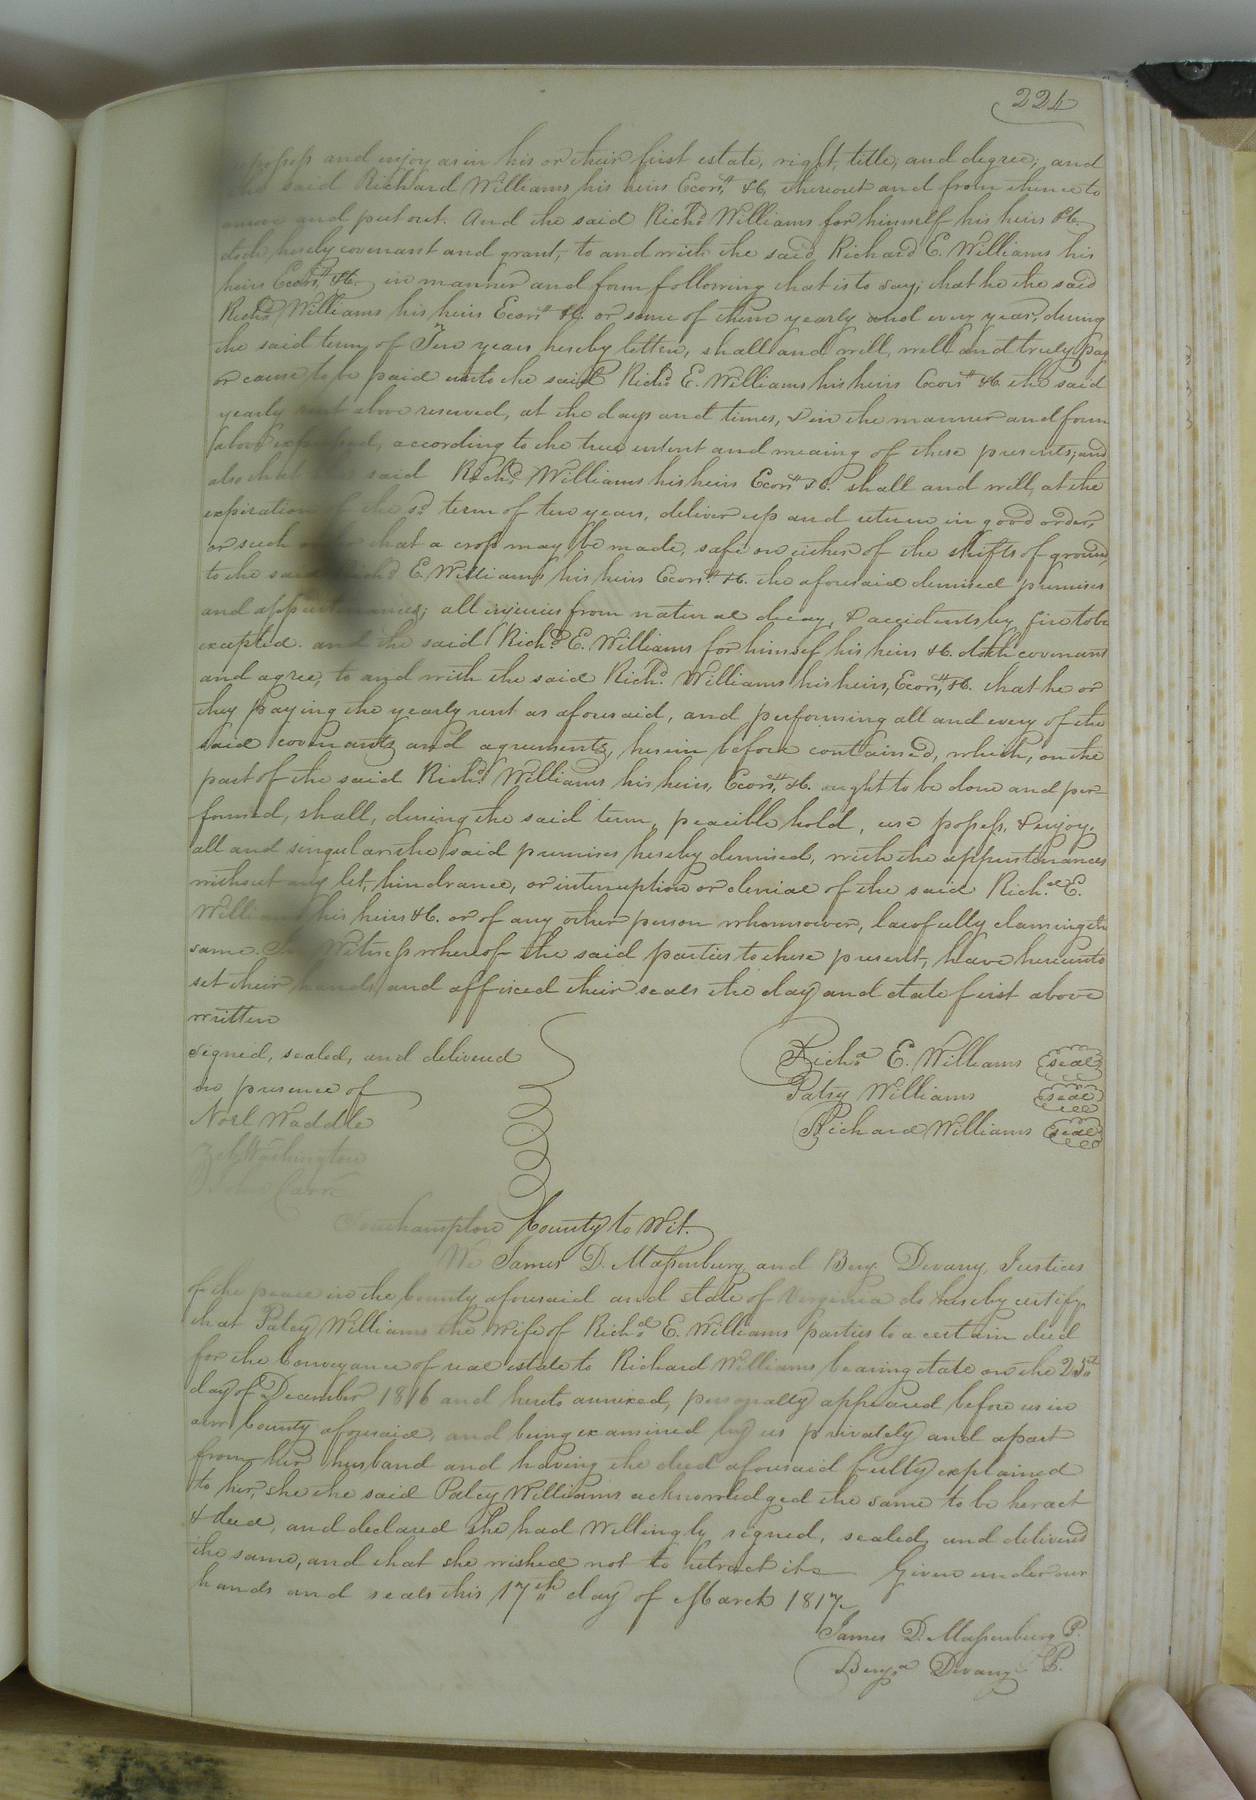 224
repossess and enjoy as in his or their first estate, right, title, and degree; and
the said Richard Williams his heirs Ecors. &C. thereout and from thence to
amove and put out. And the said Richd. Williams for himself his heirs &C.
doth hereby covenant and grant, to and with the said Richard E. Williams his
heirs Ecors. &C. in manner and form following that is to say; that he the said
Richd. Williams his heirs Ecors. &C. or some of them yearly and every year, during
the said term of Ten years hereby letten, shall and will, well and truly pay
or cause to be paid unto the said Richd. E. Williams his heirs Ecors. &C. the said
yearly rent above reserved, at the days and times, & in the manner and form
above expressed, according to the true intent and meaning of these presents; and
also that the said Richd. Williams his heirs Ecors. &C. shall and will, at the
expiration of the sd. term of ten years, deliver up and return in good order,
or such order that a crop may be made, safe on either of the shifts of ground,
to the said Richd. E. Williams his heirs Ecors. &C. the aforesaid demised premises
and appurtenances; all injuries from natural decay, & accidents by fire to be
excepted. and the said Richd. E. Williams for himself his heirs &C. doth covenant
and agree, to and with the said Richd. Williams his heirs, Ecors, &C. that he or
they paying the yearly rent as aforesaid, and performing all and every of the
said covenants and agreements, herein before contained, which, on the
part of the said Richd. Williams his heirs, Ecors, &C. ought to be done and per-
formed, shall, during the said term, peacible hold, use possess, & enjoy.
all and singular the said premises hereby demised, with the appurtenances
without any let, hindrance, or interruption or denial of the said Richd. E.
Williams his heirs &C. or of any other person whomsoever, lawfully claming the
same. In Witness whereof the said parties to these present, have hereunto
set their hands and afficed their seals the day and date first above
written
Signed, sealed, and delivered
in presence of
Noel Waddle
Richd. E. Williams seal
Patsy Williams seal
Richard Williams seal
Southampton County to Wit.
We James D. Massenburg and Benj. Devany, Justices
of the peace in the County aforesaid and state of Virginia do hereby certify,
that Patcy Williams the Wife of Richd. E. Williams parties to a certain deed
for the Conveyance of real estate to Richard Williams bearing date on the 25th
day of December 1816 and hereto annexed, personally appeared before us in
our County aforesaid, and being examined by us privately and apart
from her husband and having the deed aforesaid fully explained
to her, she the said Patcy Williams acknowledged the same to be her act
& deed, and declared she had Willingly signed, sealed, and delivered
the same, and that she wished not to retract it Given under our
hands and seals this 17th day of March 1817.
James D. Massenburg P.
Benjn. Devany P.